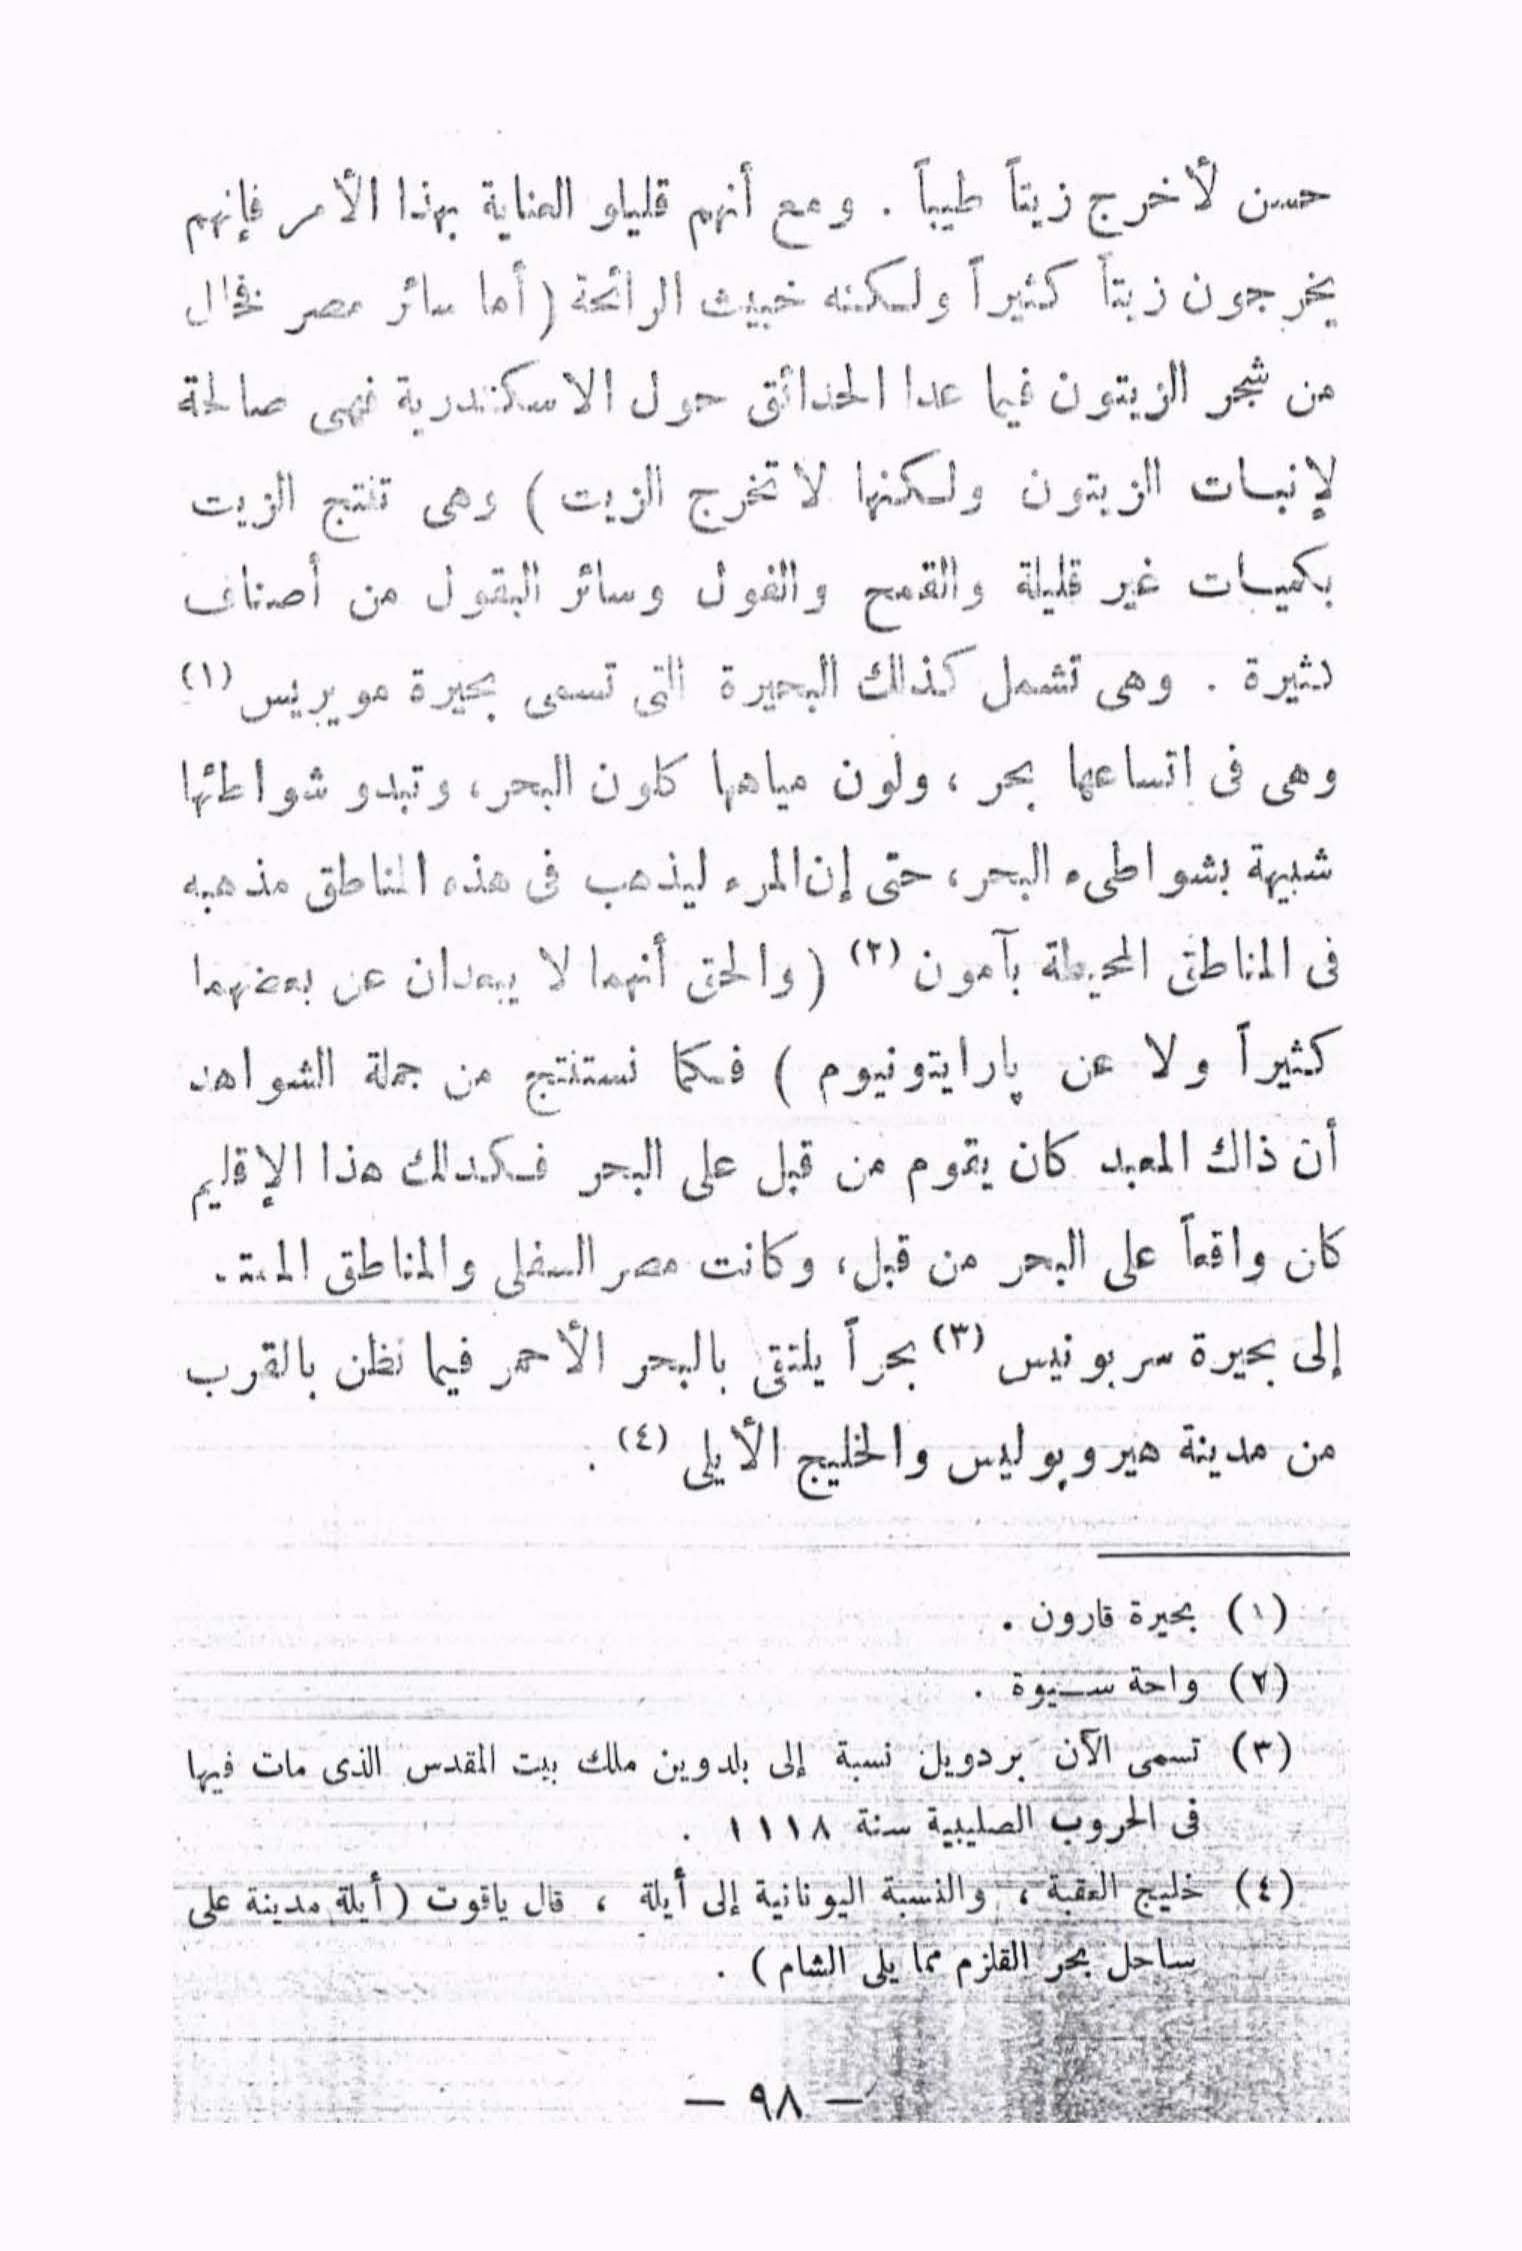 حسن لأخرج زيتاً طيباً . ومع أنهم قليلو العناية بهذا الأمر فإنهم
يخرجون زيتاً كثيراً ولكنه خبيث الرائحة ( أما سائر مصر فخال
من شجر الزيتون فيما عدا الحدائق حول الاسكندرية فهى صالحة
لإنبات الزيتون ولكنها لا تخرج الزيت ) وهى تنتج الزيت
بكميات غير قليلة والقمح والفول وسائر البقول من أصناف
كثيرة . وهى تشمل كذلك البحيرة التى تسمى بحيرة مويريس (١)
وهى فى اتساعها بحر ، ولون مياهها كلون البحر ، وتبدو شواطئها
شبيهة بشواطىء البحر ، حتى إن المرء ليذهب فى هذه المناطق مذهبه
فى المناطق المحيطة بآمون (٢) ( والحق أنهما لا يبعدان عن بعضهما
كثيراً ولا عن پارايتونيوم ) فكما نستنتج من جملة الشواهد
أن ذاك المعبد كان يقوم من قبل على البحر فكذلك هذا الإقليم
كان واقعاً على البحر من قبل ، وكانت مصر السفلى والمناطق
إلى بحيرة سربونيس (٣) بحراً يلتقى بالبحر الأحمر فيما نظن بالقرب
من مدينة هيروپوليس والخليج الأيلى (٤) .
(١) بحيرة قارون .
(٢) واحة سيوة .
(٣) تسمى الآن بردويل نسبة إلى بلدوين ملك بيت المقدس الذى مات فيها
فى الحروب الصليبية سنة ١١١٨ .
(٤) خليج العقبة ، والنسبة اليونانية إلى أيلة ، قال ياقوت ( أيلة مدينة على
ساحل بحر القلزم مما يلى الشام ) .
— ٩٨ —